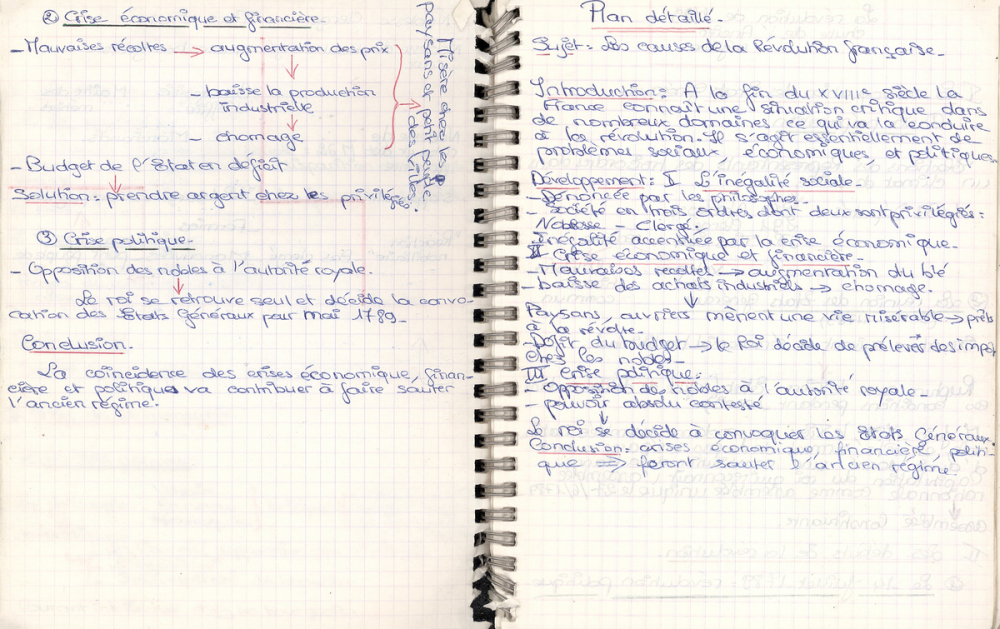 ② Crise économique et financière.
- Mauvaises récoltes → augmentation des prix
- baisse la production
industrielle
- chomage
Misère chez les
paysans et petit peuple
des villes.
- Budget de l'Etat en déficit
Solution: prendre argent chez les privilégiés.
③ Crise politique.
- Opposition des nobles à l'autorité royale.
Le roi se retrouve seul et décide la convo-
cation des Etats Généraux pour mai 1789.
Conclusion.
La coïncidence des crises économique, finan-
cière et politique va contribuer à faire sauter
l'ancien régime.
Plan détaillé.
Sujet: Les causes de la Révolution française.
Introduction: A la fin du XVIIIe siècle la
France connait une situation critique dans
de nombreux domaines ce qui va la conduire
à la révolution. Il s'agit essentiellement de
problèmes sociaux, économiques et politiques.
Développement: I L'inégalité sociale.
- Dénoncée par les philosophes.
- Société en trois ordres dont deux sont privilégiés:
Noblesse - Clergé.
- Inégalité accentuée par la crise économique.
II Crise économique et financière.
- Mauvaises récoltes → augmentation du blé
- baisse des achats industriels → chomage.
Paysans, ouvriers mènent une vie misérable → prêts
à la révolte.
- Déficit du budget → le Roi décide de prélever des impôts
chez les nobles.
III Crise politique:
- Opposition des nobles à l'autorité royale.
- pouvoir absolu contesté
Le roi se décide à convoquer les Etats Généraux.
Conclusion: crises économique, financière, politi-
que ⇒ feront sauter l'ancien régime.